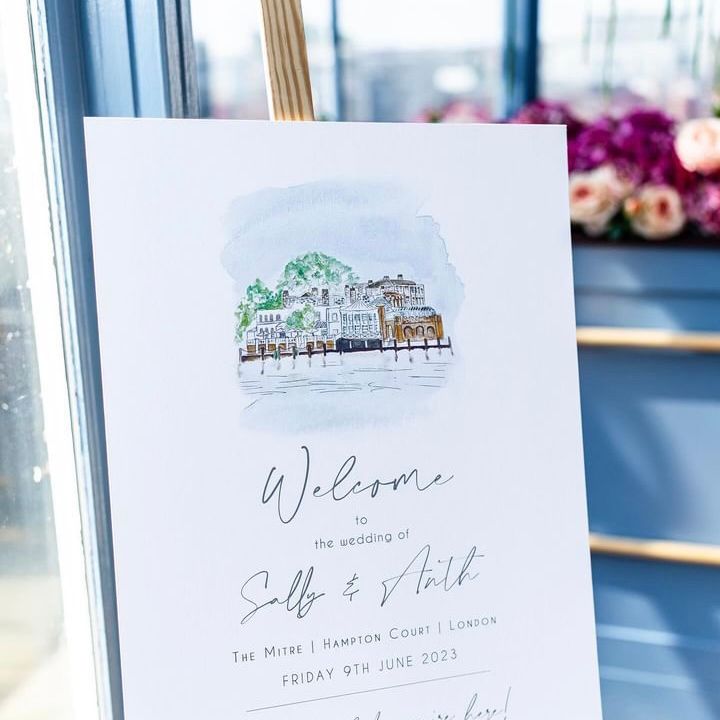 Welcome
to
the wedding of
Sally & Anth
The Mitre | Hampton Court | London
FRIDAY 9TH JUNE 2023
here!